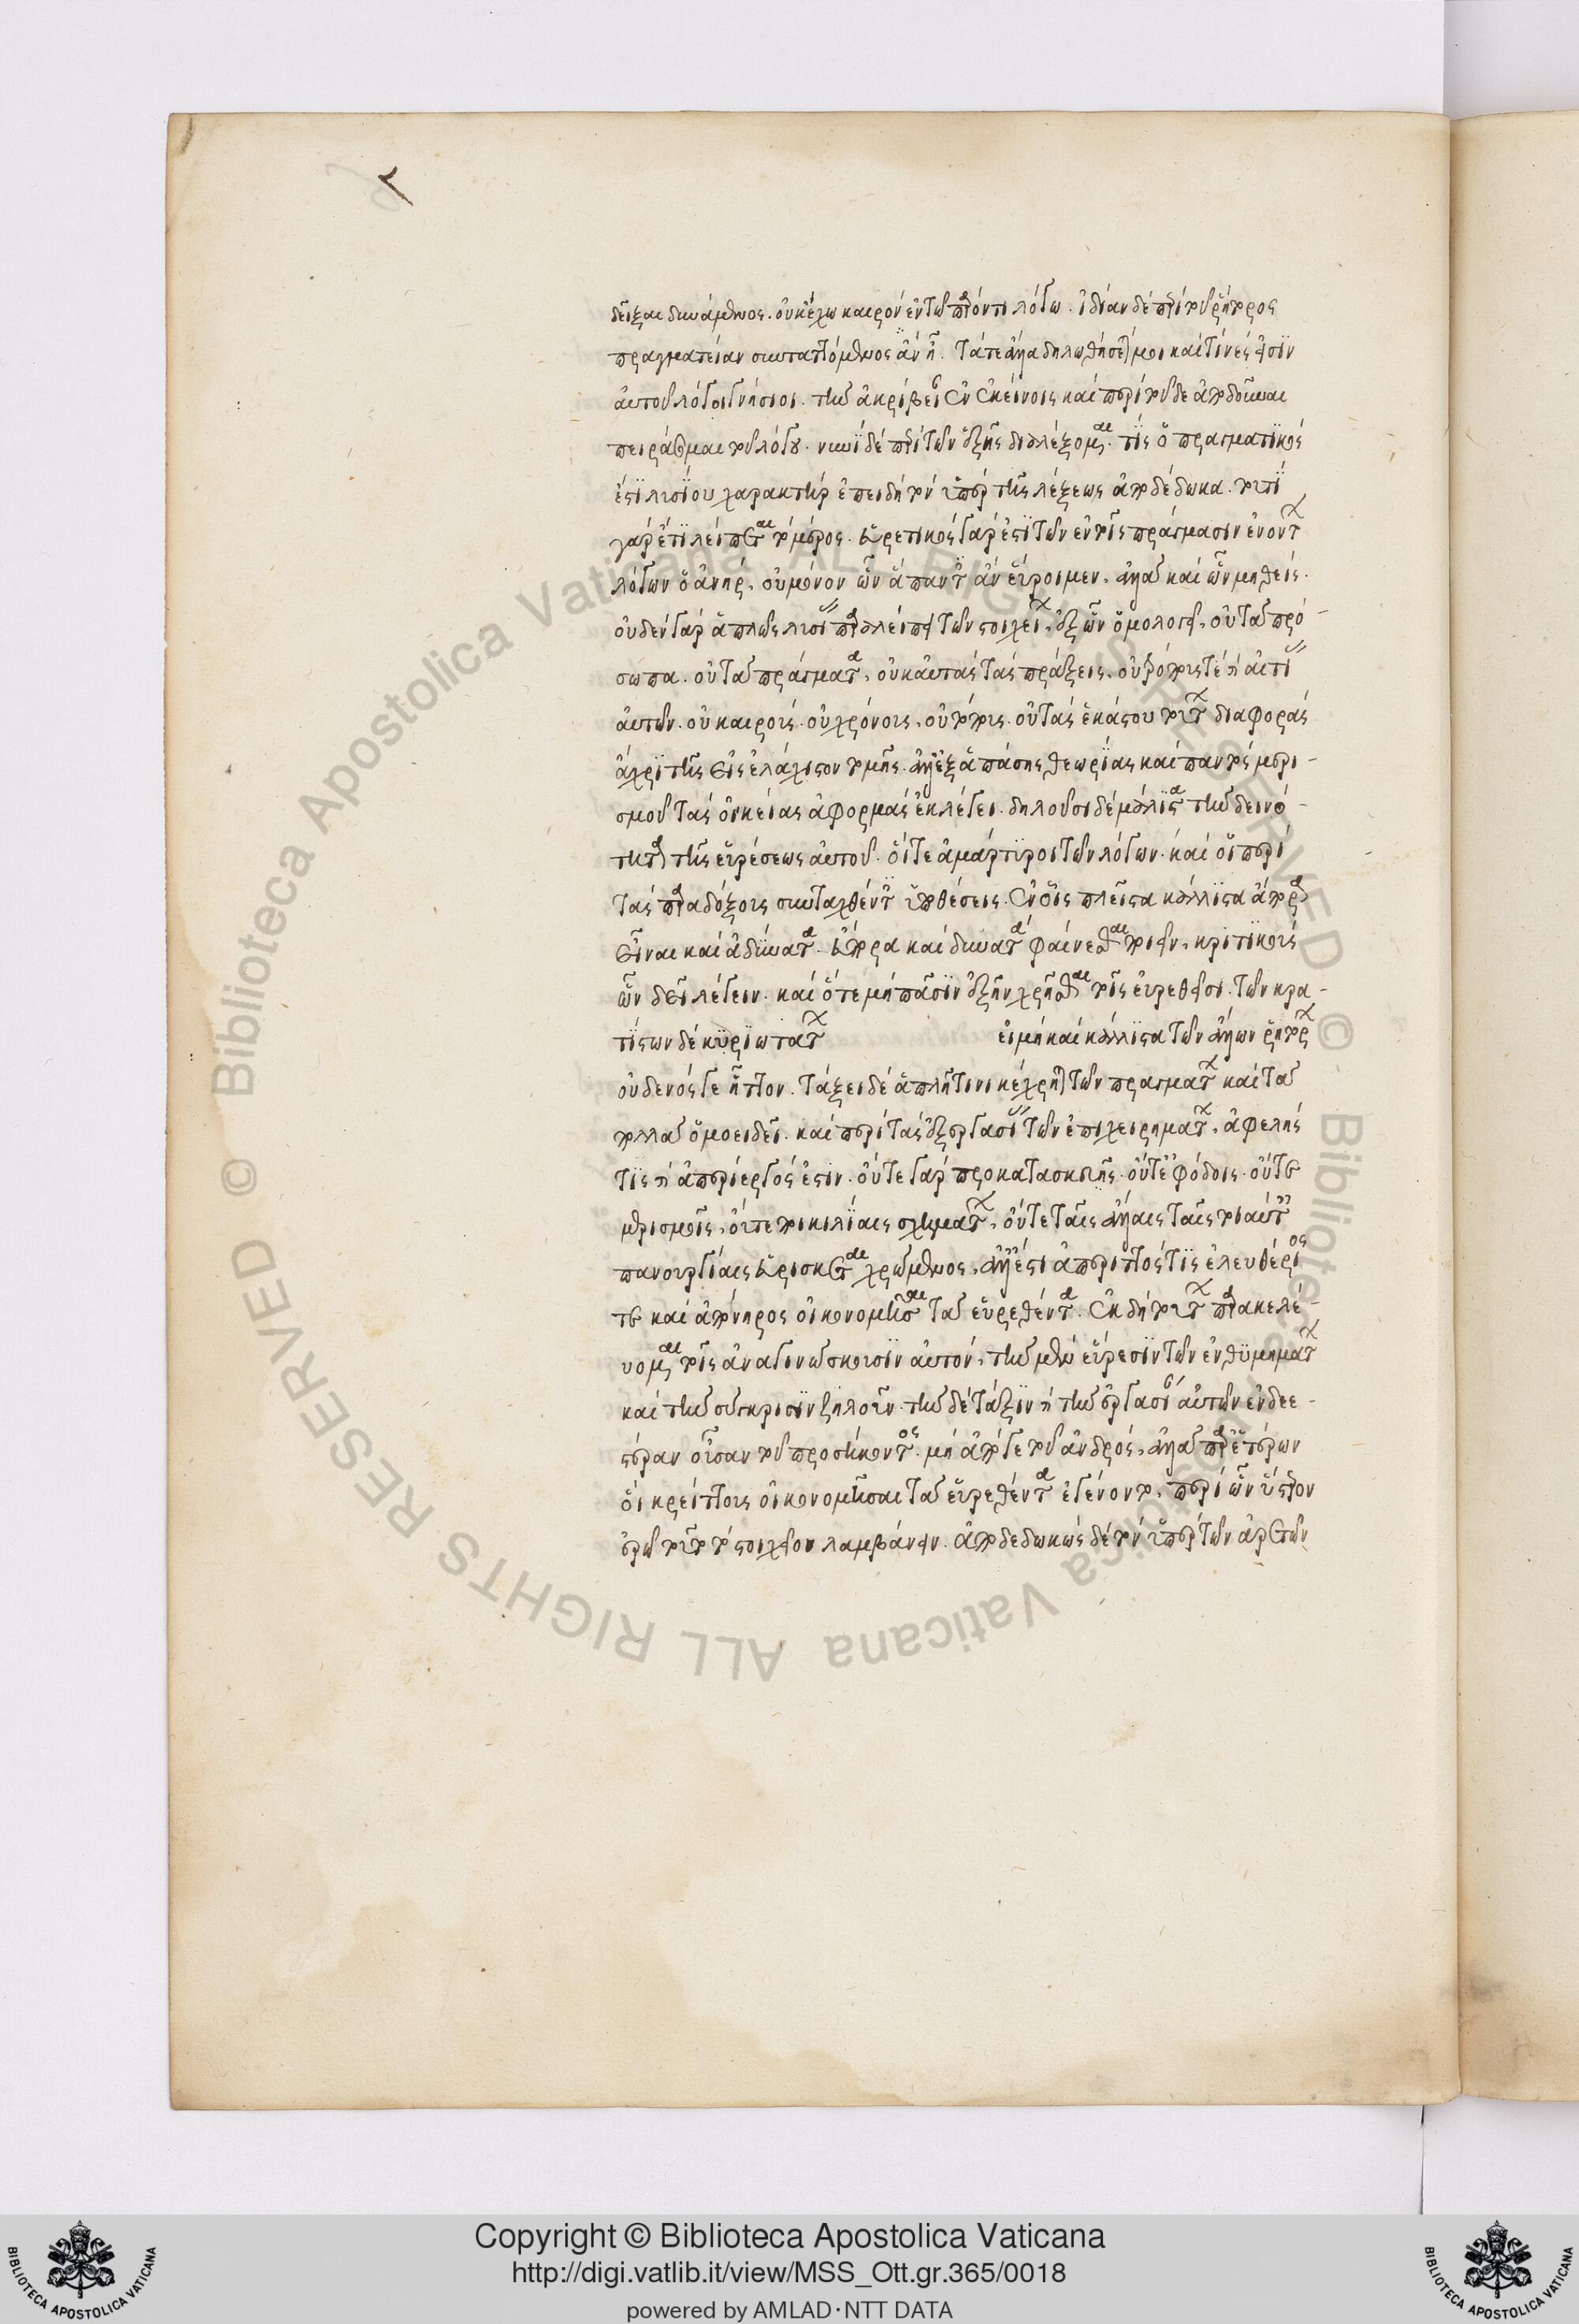 δεῖξαι δυνάμενος. οὐκ ἔχω καιρὸν ἐν τῷ παρόντι λόγω. ἰδίαν δὲ περὶ τοῦ ῥήτορος
πραγματείαν συνταττόμενος ἂν ᾗ. τά τε ἄλλα δηλωθήσεταί μοι καὶ τίνές εἰσϊν
αὐτοῦ λόγοι γνήσιοι. τὴν ἀκρίβειαν ἐν ἐκείνοις καὶ περὶ τοῦδε ἀποδοῦναι
πειράσομαι τοῦ λόγου. νυνῒ δὲ περὶ τῶν ἑξῆς διαλέξομαι. τίς ὁ πραγματϊκός
ἐστι λυσίου χαρακτήρ ἐπειδὴ τὸν ὑπὲρ τῆς λέξεως ἀποδέδωκα. τουτῒ
γὰρ ἔτι λείπεται τὸ μέρος. εὑρετικὸς γάρ ἐστι τῶν ἐν τοῖς πράγμασιν ἐνόντων
λόγων ὁ ἀνήρ, οὐ μόνον ὧν ἅπαντες ἂν εὕροιμεν, ἀλλὰ καὶ ὧν μηθείς.
οὐδὲν γὰρ ἁπλῶς λυσίας παραλείπει τῶν στοιχείων, ἐξ ὧν ὁ μόλογει, οὐ τὰ πρό-
σωπα. οὐ τὰ πράγματα, οὐκ αὐτὰς τὰς πράξεις, οὐ τρόπους τέ ἢ αἰτίας
αὐτῶν. οὐ καιρούς. οὐ χρόνους, οὐ τόπους. οὐ τὰς ἑκάστου τούτων διαφοράς
ἄχρι τῆς εἰς ἐλάχιστον τομῆς. ἀλλ' ἐξ ἁπάσης θεωρίας καὶ παντὸς μερι-
σμοῦ τὰς οἰκείας ἀφορμὰς ἐκλέγει. δηλοῦσι δὲ μάλιστα τὴν δεινό-
τητα τῆς εὑρέσεως αὐτοῦ. οἵ τε ἀμάρτυροι τῶν λόγων. καὶ οἱ περὶ
τὰς παραδόξους συνταχθέντες ὑποθέσεις. ἐν οἷς πλεῖστα κάλλιστα ἄπορα
εἶναι καὶ ἀδύνατα. εὔπορα καὶ δυνατὰ φαίνεσθαι ποιεῖν, κριτϊκοὺς
ὧν δεῖ λέγειν. καὶ ὅτε μὴ πᾶσιν ἐξῆν χρῆσθαι τοῖς εὑρεθεῖσι. τῶν κρα-
τίστων δὲ κυριωτάτων εἰ μὴ καὶ κάλλϊστα τῶν ἄλλων ῥητόρων
οὐδενός γε ἧττον. τάξει δὲ ἁπλῇ τινι κέχρηται τῶν πραγμάτων καὶ τὰ
πολλὰ ὁμοειδεῖ. καὶ περὶ τὰς ἐξεργασίας τῶν ἐπιχειρημάτων, ἀφελής
τις ἢ ἀπερίεργός ἐστιν. οὔτε γὰρ προκατασκευῆς. οὔτ' ἐφόδοις. οὔτε
μερισμοῖς, οὔτε ποικιλίαις σχημάτων, οὔτε ταῖς ἄλλαις ταῖς τοιαύταις
πανουργίαις εὑρίσκεται χρώμενος, ἀλλ' ἔστι ἀπέριττός τις ἐλευθέριός
τε καὶ ἀπόνηρος οἰκονομῆσαι τὰ εὑρεθέντα. ἐκ δὴ τούτων παρακελε-
ύομαι τοῖς ἀναγινώσκουσϊν αὐτόν, τὴν μὲν εὕρεσϊν τῶν ἐνθυμημάτων
καὶ τὴν σύγκρισϊν ζηλοῦν. τὴν δὲ τάξϊν ἢ τὴν ἐργασίαν αὐτῶν ἐνδεε-
στέραν οὖσαν τοῦ προσήκοντος. μὴ ἀπό γε τοῦ ἀνδρός, ἀλλὰ παρ' ἑτέρων
οἳ κρείττους οἰκονομῆσαι τὰ εὑρεθέντα ἐγένοντο, περὶ ὧν ὕστερον
ἐρῶ τοῦτο τὸ στοιχεῖον λαμβάνειν. ἀποδεδωκὼς δὲ τὸν ὑπὲρ τῶν ἀρετῶν
Copyright © Biblioteca Apostolica Vaticana
http://digi.vatlib.it/view/MSS_Ott.gr.365/0018
powered by AMLAD·NTT DATA